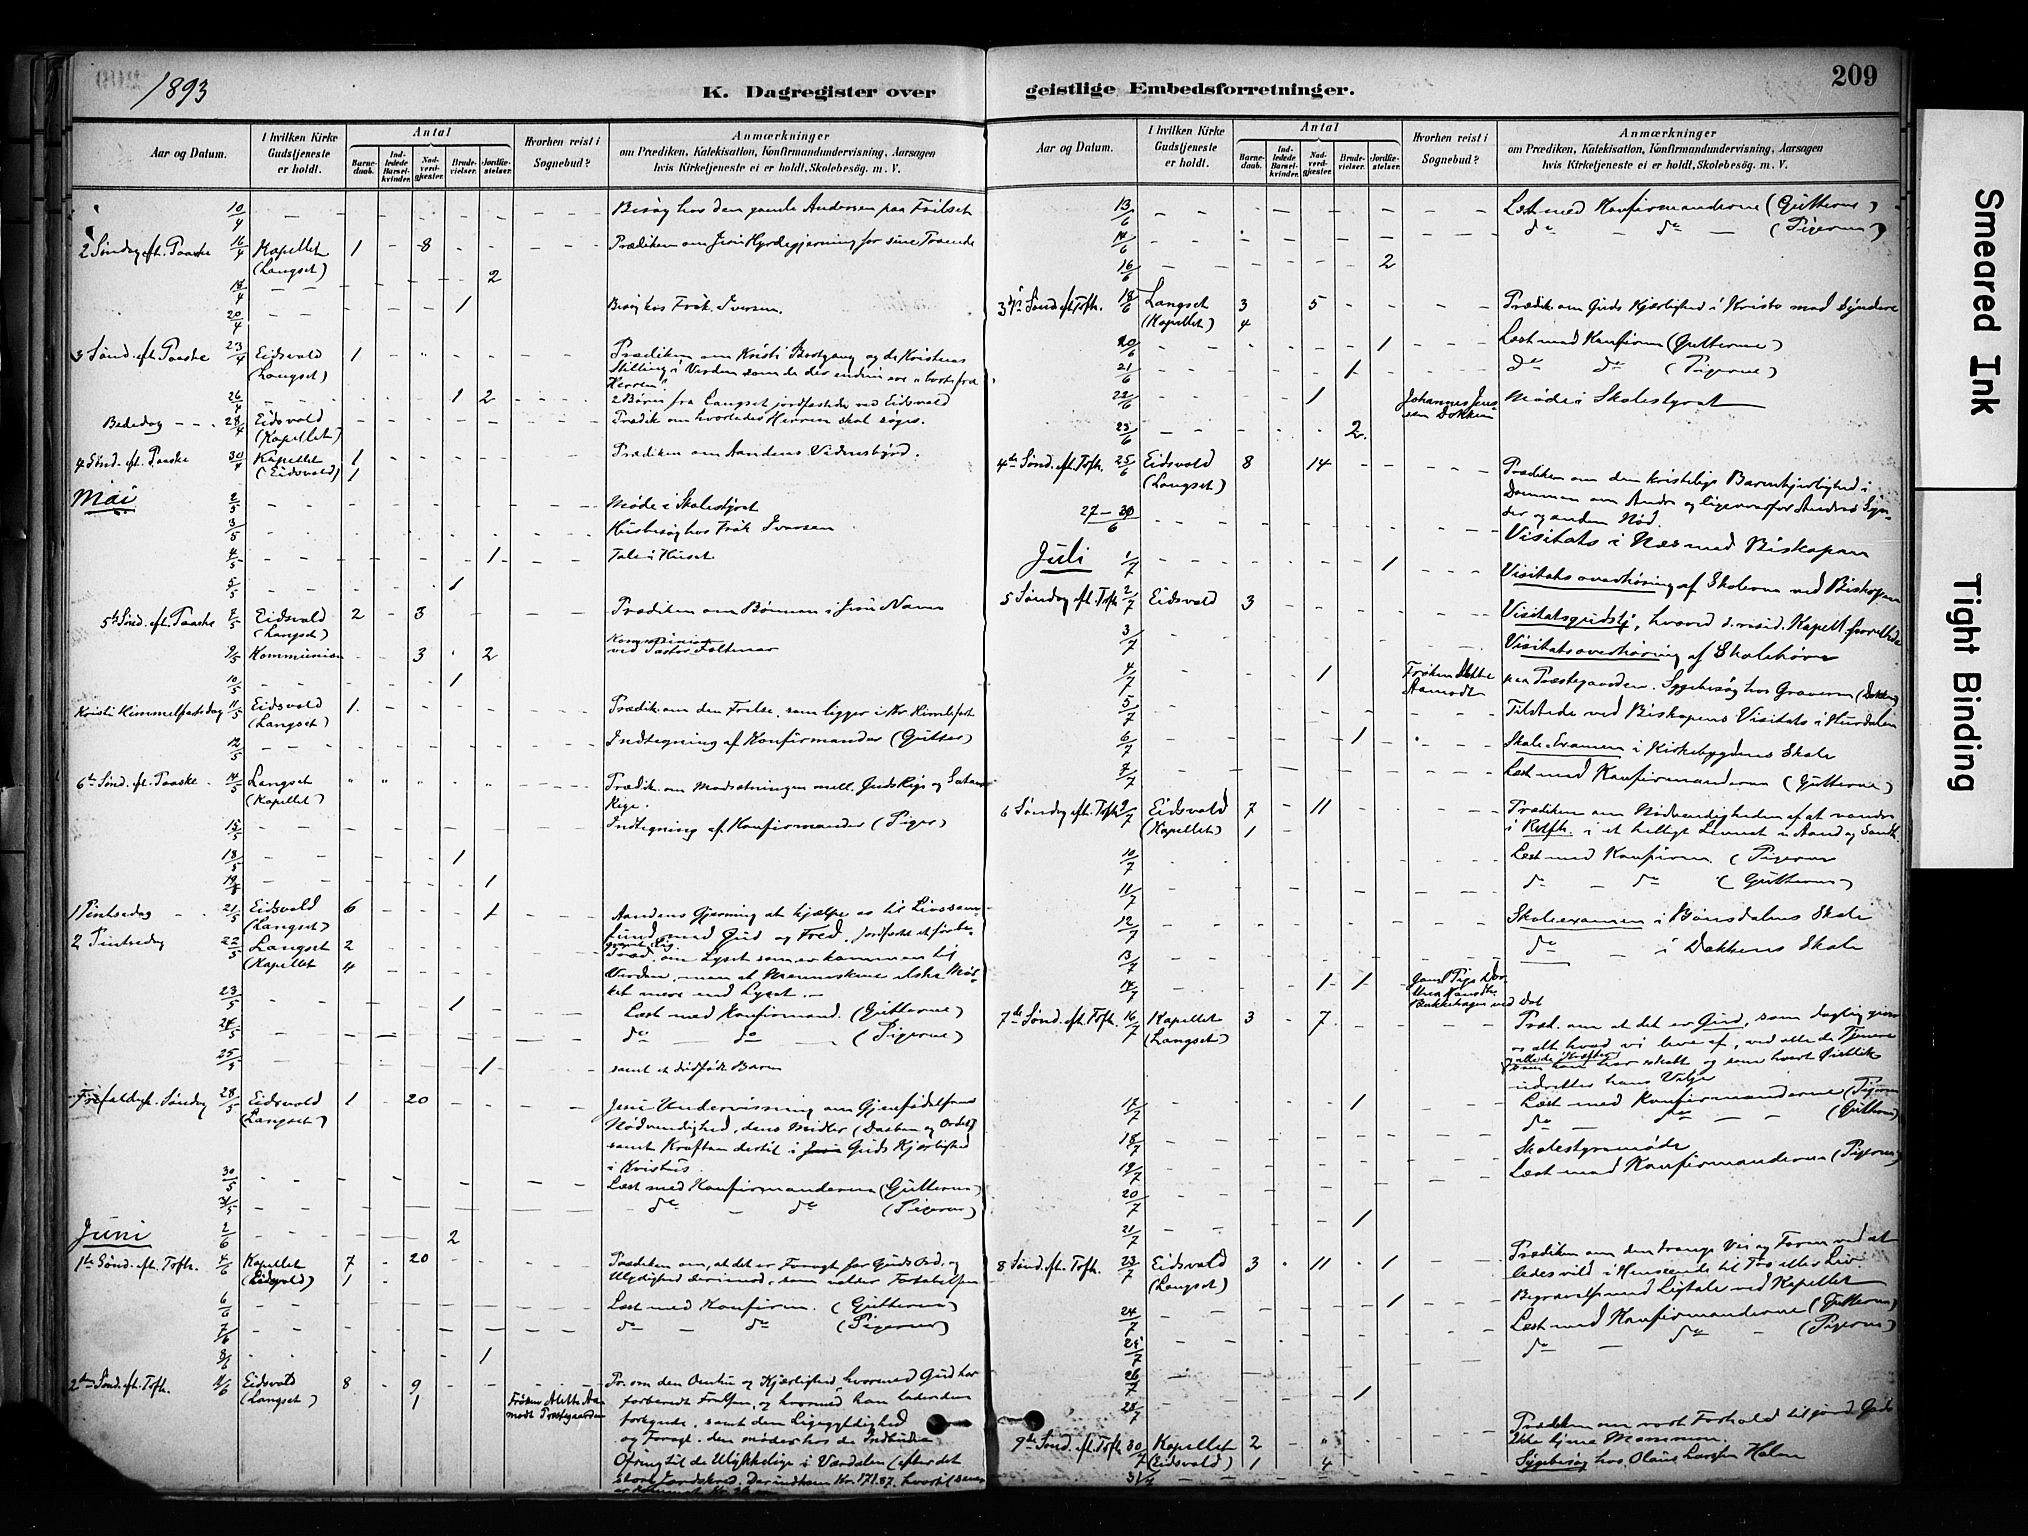 1893
K. Dagregister over
Aar og Datum.
I hvilken Kirke Gudstjeneste er holdt.
Antal
Barnedaab.
Indledede Barselkvinder.
Nadverdgjester.
Brudevielser.
Jordfæstelser.
Hvorhen reist i Sognebud?
Anmærkninger
om Prædiken, Katekisation, Konfirmandundervisning, Aarsagen
hvis Kirketjeneste ei er holdt, Skolebesög. m. V.
10/4 Besøg hos den gamle Andersen paa
2 Søndag eft. Paaske 16/4 Kapellet 1 - 8 Prædiken om Jesu Hyrdegjerning for sine Troende
(Langset)
18/4 2
20/4 1 Besøg hos Frøk. Iversen.
3 Sønd. eft. Paaske 23/4 Eidsvold 1 Prædiken om Kristi Bortgang og de Kristnes
(Langset) Stilling i Verden som de der endnu ere "borte fra
Herren"
26/4 1 2 2 Børn fra Langset jordfæstede ved Eidsvold
Bededag 28/4 Eidsvold Prædik om hvorledes Herren skal søges.
(Kapellet)
4 Sønd. eft. Paaske 30/4 Kapellet 1 Prædiken om Aandens Vidnesbyrd.
(Eidsvold) 1
Mai 2/5 Møde i Skolestyret
3/5 Husbesøg hos Frøk Iversen
4/5 1 Tale i Huset
5/5 1
5te Sønd. eft. Paaske 7/5 Eidsvold 2 - 3 Prædiken om Bønnen i Jesu Navn
(Langset)
9/5 Kommunion 3 2 ved Pastor
10/5 1
Kristi Himmelfartsdag 11/5 Eidsvold 1 Prædik. om den Frelse, som ligger i Kr. Himlefart
(Langset)
12/5 Indtegning af Konfirmander (Gutter)
6te Sønd. eft. Paaske 14/5 Langset Prædik. om Modsætningen mell. Guds Rige og Satans
(Kapellet) Rige.
15/5 Indtegning af Konfirmander (Piger)
18/5 1
19/5 1
1 Pintsedag 21/5 Eidsvold 6 1 Aandens Gjerning at hjælpe os til Livssam-
(Langset) fund med Gud og Fred.
2 Pintsedag 22/5 Langset 2 Præd. om Lyset som er kommen til
(Kapellet 4 Verden, men at Menneskene elske Mør-
ket mere end Lyset.
23/5 1 Læst med Konfirmand. (Gutterne)
24/5 do do (Pigerne)
25/5 1 samt et dødfødt Barn
Trefoldigh. Søndag 28/5 Eidsvold 1 - 20 Jesu Undervisning om Gjenfødelsens
(Langset) Nødvendighed, dens Midler (Daaben og Ordet)
samt Kraften dertil i Guds Kjærlighed
i Kristus.
30/5 Læst med Konfirmanderne (Gutterne)
31/5 do - do (Pigerne)
Juni 2/6 2
1ste Sønd. eft. Trefh. 4/6 Kapellet 7 - 20 Prædiken om, at det er Foragt for Guds Ord, og
(Eidsvold) 1 Ulydighed derimod, som volder Fortabelsen
6/6 Læst med Konfirm. (Gutterne)
7/6 do - do (Pigerne)
8/6 1
2den Sønd. eft. Trefh. 11/6 Eidsvold 8 - 9 Pr. om den Omhu og Kjærlighed, hvormed Gud har
(Langset) 1 Frøken forberedt Frelsen, og hvormed han lader den
forkynde, samt den Ligegyldighed
og Foragt, den møder hos de Indbudne
Ofring til de Ulykkelige i Værdalen (efter det
store Jordskred. Der indkom Kr. 171.87, hvortil senere
er kommet Kr.
geistlige Embedsforretninger.
209
Aar og Datum.
I hvilken Kirke Gudstjeneste er holdt.
Antal
Barnedaab.
Indledede Barselkvinder.
Nadverdgjester.
Brudevielser.
Jordfæstelser.
Hvorhen reist i Sognebud?
Anmærkninger
om Prædiken, Katekisation, Konfirmandundervisning, Aarsagen
hvis Kirketjeneste ei er holdt, Skolebesög. m. V.
13/6 Læst med Konfirmanderne (Gutterne)
14/6 do - do - (Pigerne)
16/6 2
3die Sønd eft Trefh. 18/6 Langset 3 5 Prædik. om Guds Kjærlighed i Kristo mod Syndere
(Kapellet) 4
20/6 1 Læst med Konfirm (Gutterne)
21/6 1 do do (Pigerne)
22/6 1 Johannes Jens- Møde i Skolestyret
sen Dokken
23/6 2
4de Sønd. eft. Trefh. 25/6 Eidsvold 8 - 14 Prædiken om den kristelige Barmhjertighed i
(Langset) Dommen om Andre og ligeoverfor Andres Syn-
der og anden Nød.
27-30/6 Visitats i Næs med Biskopen
Juli 1/7 1 Visitatsoverhøring af Skolerne ved Biskopen
5 Søndag eft. Trefh 2/7 Eidsvold 3 Visitatsgudstj, hvorved d. resid. Kapell. forrettede
3/7 Visitatsoverhøring af Skolebørn
4/7 1 Frøken paa Præstegaarden. Sygebesøg hos Graveren (Dokken)
Aamodt
5/7 Tilstede ved Biskopens Visitats i Hurdalen
6/7 1 Skole-Examen i Kirkebygdens Skole
7/7 Læst med Konfirmanderne (Gutterne)
6 Søndag eft. Trefh 9/7 Eidsvold 7 - 11 Prædiken om Nødvendigheden af at vandre
(Kapellet) 1 i Retfh. i et helligt Levnet i Aand og Sandh.
10/7 Læst med Konfirm. (Pigerne
11/7 do - do (Gutterne)
12/7 Skoleexamen i Bønsdalens Skole
13/7 do - i Dokkens Skole
14/7 1 1
Bakkehagen ved Dal
7de Sønd. eft. Trefh. 16/7 Kapellet 3 - 7 Præd. om at det er Gud, som daglig giver
(Langset) os alt hvad vi leve af, ved alle de Tjenere
og alle de Kræfter
som han har skabt og som hvert Øieblik
udretter hans Vilje
17/7 1 Læst med Konfirmanderne (Pigerne
18/7 do - do - (Gutterne)
19/7 Skolestyremøde
20/7 Læst med Konfirmanderne (Pigerne)
21/7 1
8 Sønd. eft. Trefh. 23/7 Eidsvold 3 - 11 - 1 Prædiken om den trange Vei og Faren ved at
(Langset) ledes vild i Henseende til Tro eller Liv
24/7 1 Begravelse med Ligtale ved Kapellet
Læst med Konfirmanderne (Gutterne)
25/7 do - do (Pigerne)
26/7 1
28/7
9de Sønd. eft. Trefh 30/7 Kapellet 2 Prædiken om vort Forhold til jord. Gods
(Eidsvold) 1 4 ikke tjene Mammon.
31/7 Sygebesøg hos Olaus Larsen Holm
Smeared Ink
Tight Binding